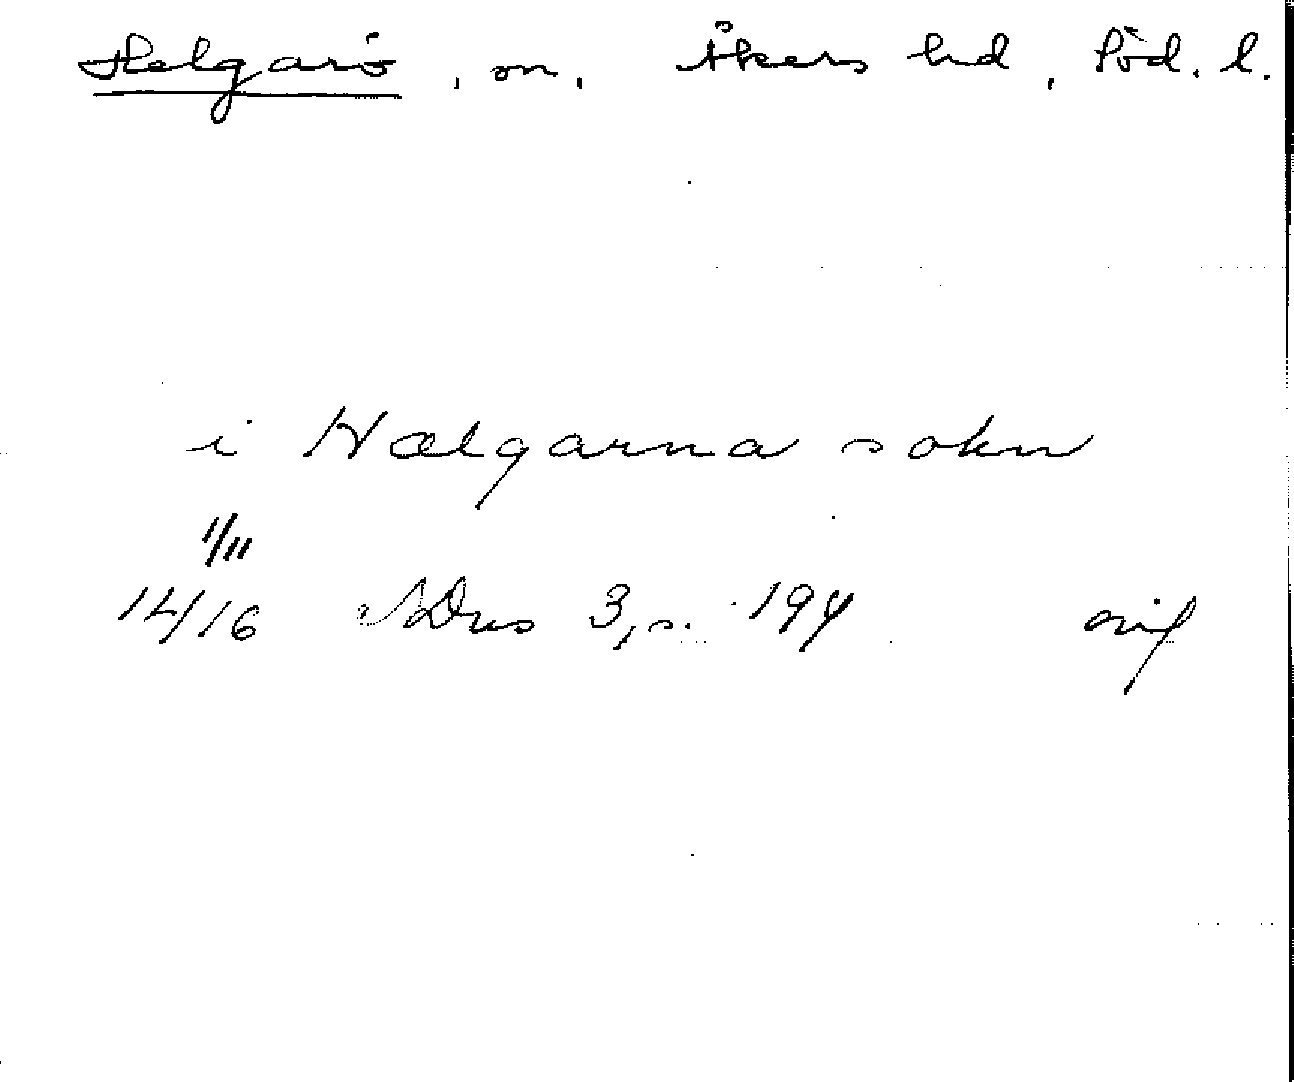 Helgarö, sn, Åkers hd, Söd. l.
i Hælgarna sokn
1/11
1416 SDns 3, s. 194 orig